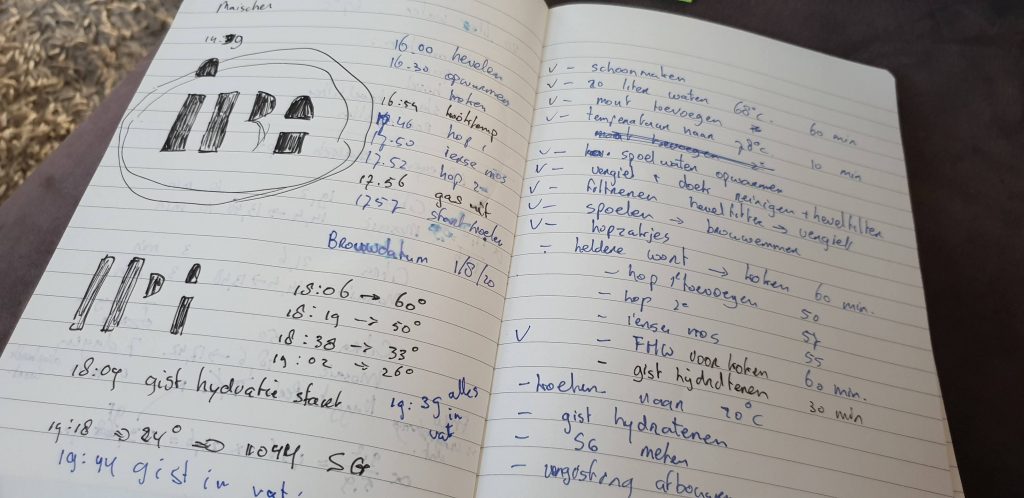 Maischen
16.00 hevelen
16.30 opwarmen
koken
16:54 kooktemp
17.46 hop 1
17.50 iers mos
17.52 hop 2e
17.56 gas uit
17.57 start koelen
Brouwdatum 1/8/20
18:06 → 60°
18:19 → 50°
18:38 → 33°
19:02 → 26°
18:09 gist hydratie start
19:39 alles in vat
19:18 ⇒ 24° ⇒ 1044 SG
19:44 gist in vat
✓ – schoonmaken
✓ – 20 liter water 68°C.
✓ – mout toevoegen 60 min
✓ – temperatuur naar 78°C. 10 min
✓ – spoelwater opwarmen
✓ – vergiet + doek reinigen + hevelfilter
✓ – filteren hevelfilter → vergiet
✓ – spoelen → brouwemmer
✓ – hopzakjes
– heldere wort → koken 60 min.
– hop 1e toevoegen 50
– hop 2e 57
– iers mos 55
✓ – FHW voor koken 60 min.
– gist hydrateren 30 min
– koelen naar 20°C
– gist hydrateren
– SG meten